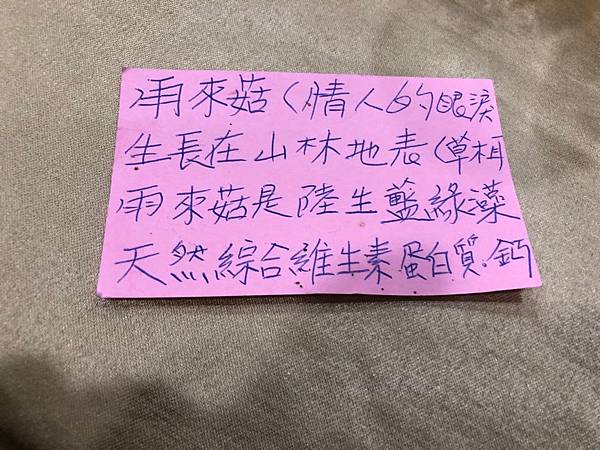 雨來菇(情人的眼淚
生長在山林地表(草相
雨來菇是陸生藍綠藻
天然綜合維生素蛋白質.鈣